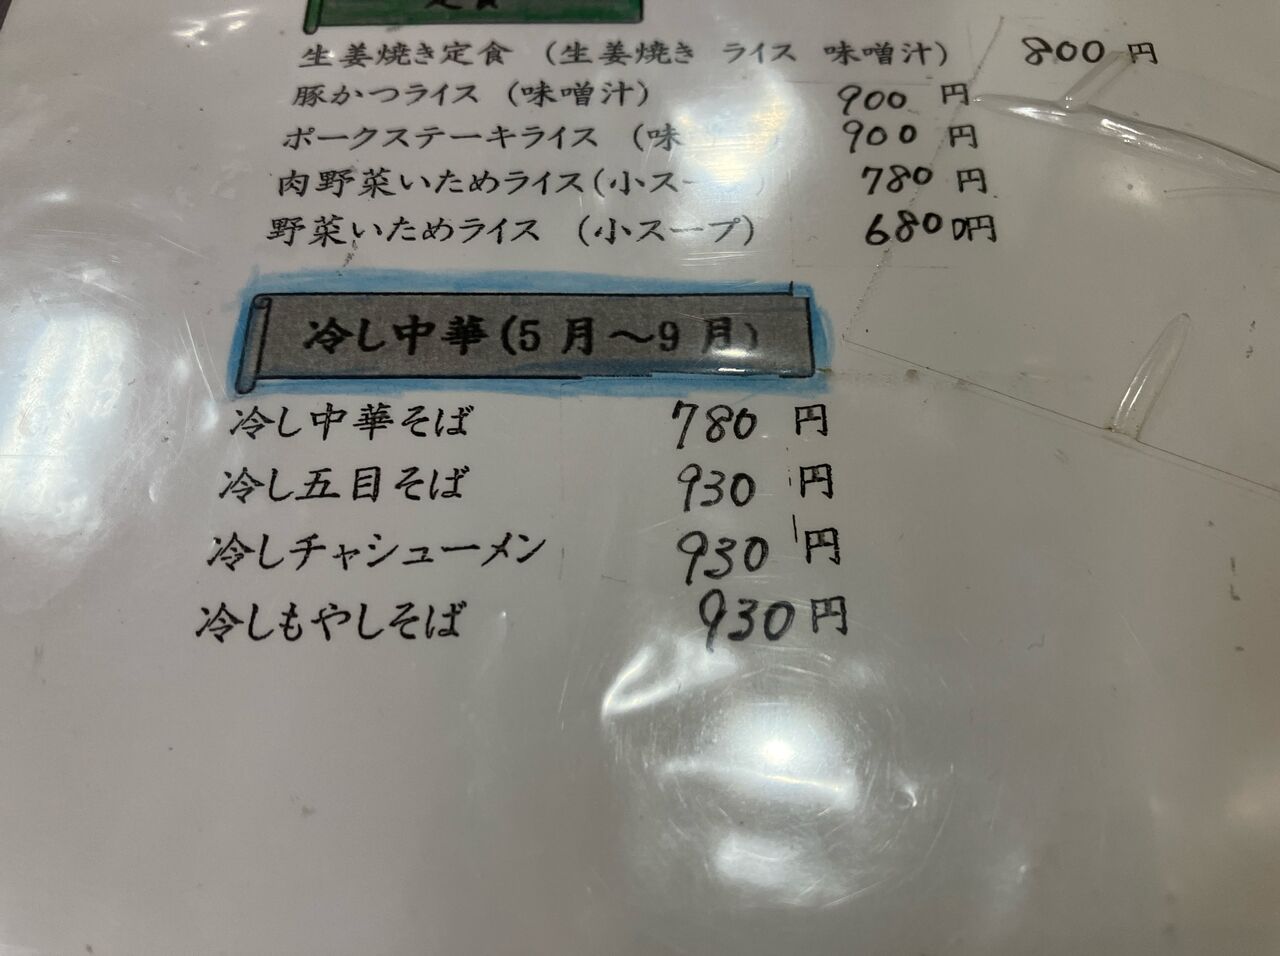 定食
生姜焼き定食 (生姜焼き ライス 味噌汁) 800円
豚かつライス (味噌汁) 900円
ポークステーキライス (味 900円
肉野菜いためライス(小スー ) 780円
野菜いためライス (小スープ) 680円
冷し中華(5月～9月)
冷し中華そば 780円
冷し五目そば 930円
冷しチャシューメン 930円
冷しもやしそば 930円